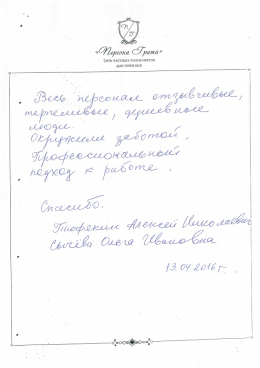 П/Г
«Персона Гранта»
Сеть частных пансионатов
для пожилых
Весь персонал отзывчивые,
терпеливые, душевные
люди.
Окружили заботой.
Профессиональный
подход к работе.
Спасибо.
Алексей Николаевич
Сычёва Ольга Ивановна
13.04.2016г.